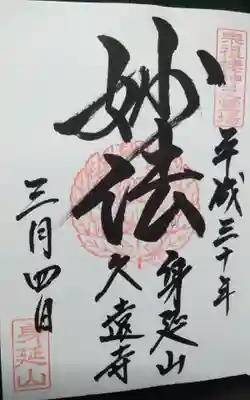 平成三十年
妙法
身延山
久遠寺
三月四日
身延山